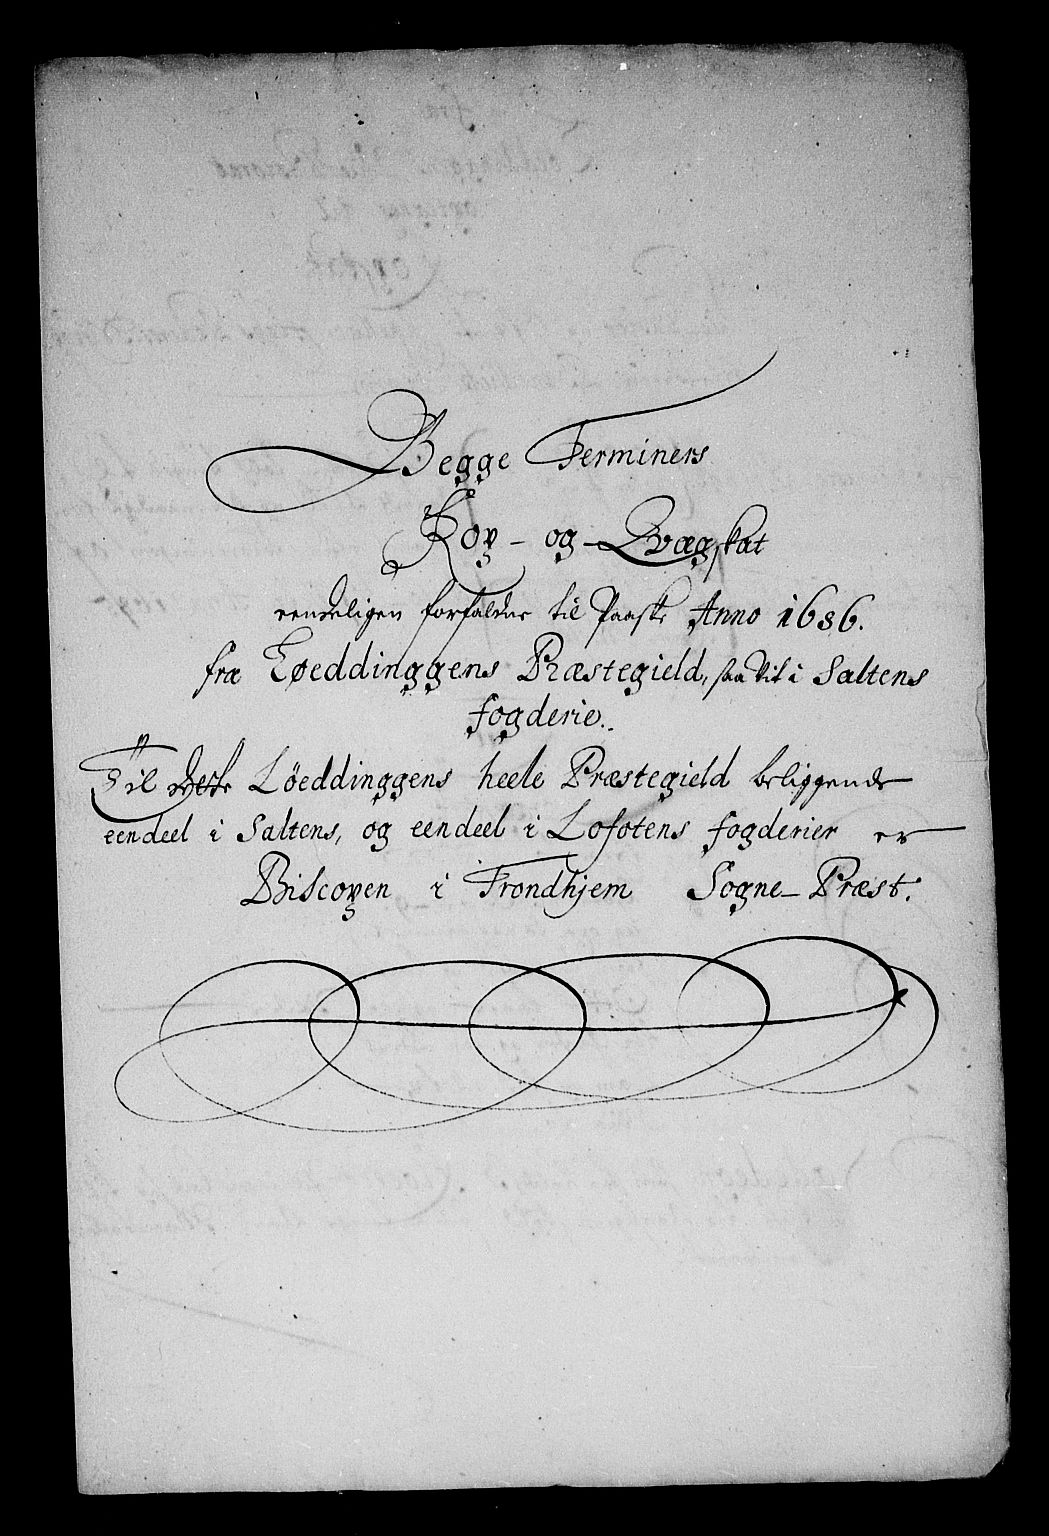 Begge Terminers
Kop- og Qvægskat
eendeligen forfalden til Paaske Anno 1686.
fra Løeddinggens Præstegield, saa vit i Saltens
fogderie.
Til dette Løeddinggens heele Præstegield beliggende
eendeel i Saltens, og eendeel i Lofotens fogderier er
Biscopen i Trondhjem Sogne-Præst.